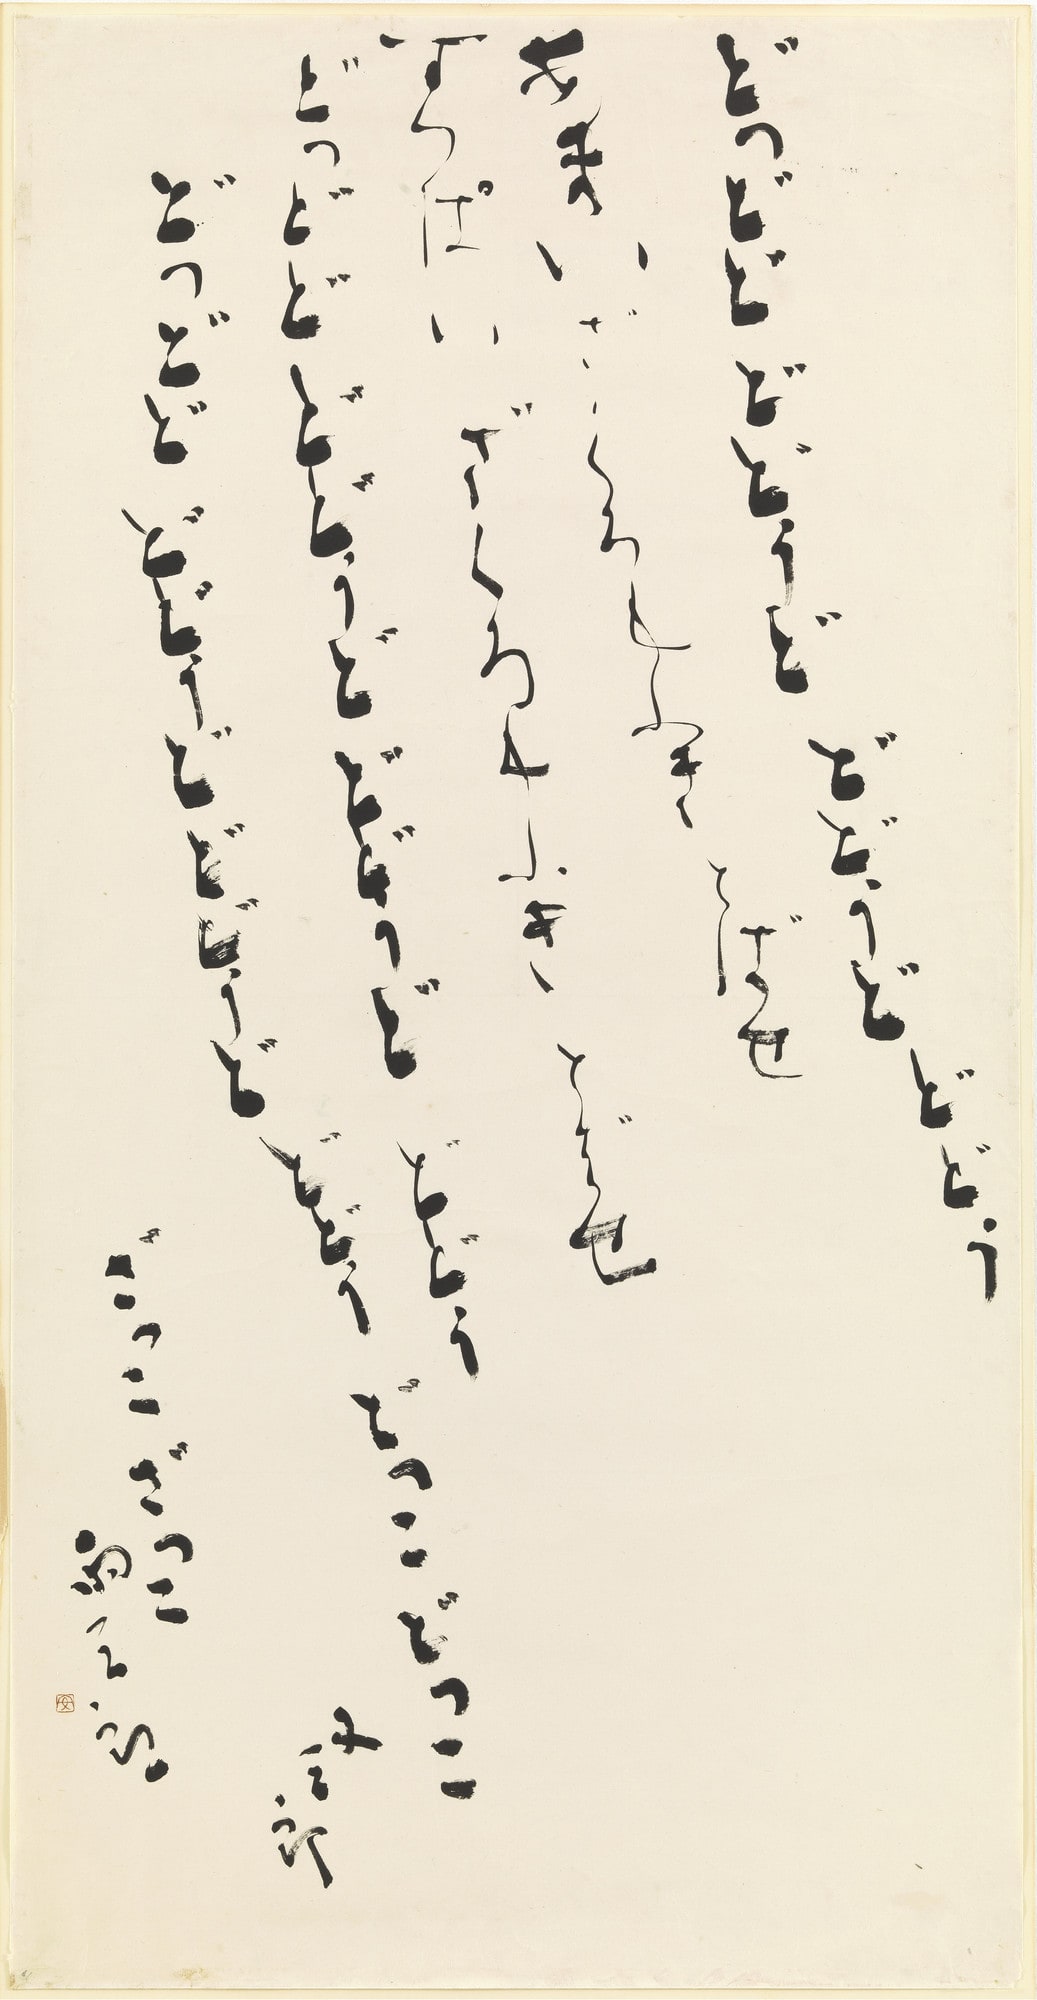 どつどど どどうど どどうど どどう
あまい ざくろもふき とばせ
すつぱい ざくろもふき とばせ
どつどど どどうど どどうど どどう
どつこ どつこ
又三郎
どつどど どどうど どどうど どどう
ざつこ ざつこ
雨三郎